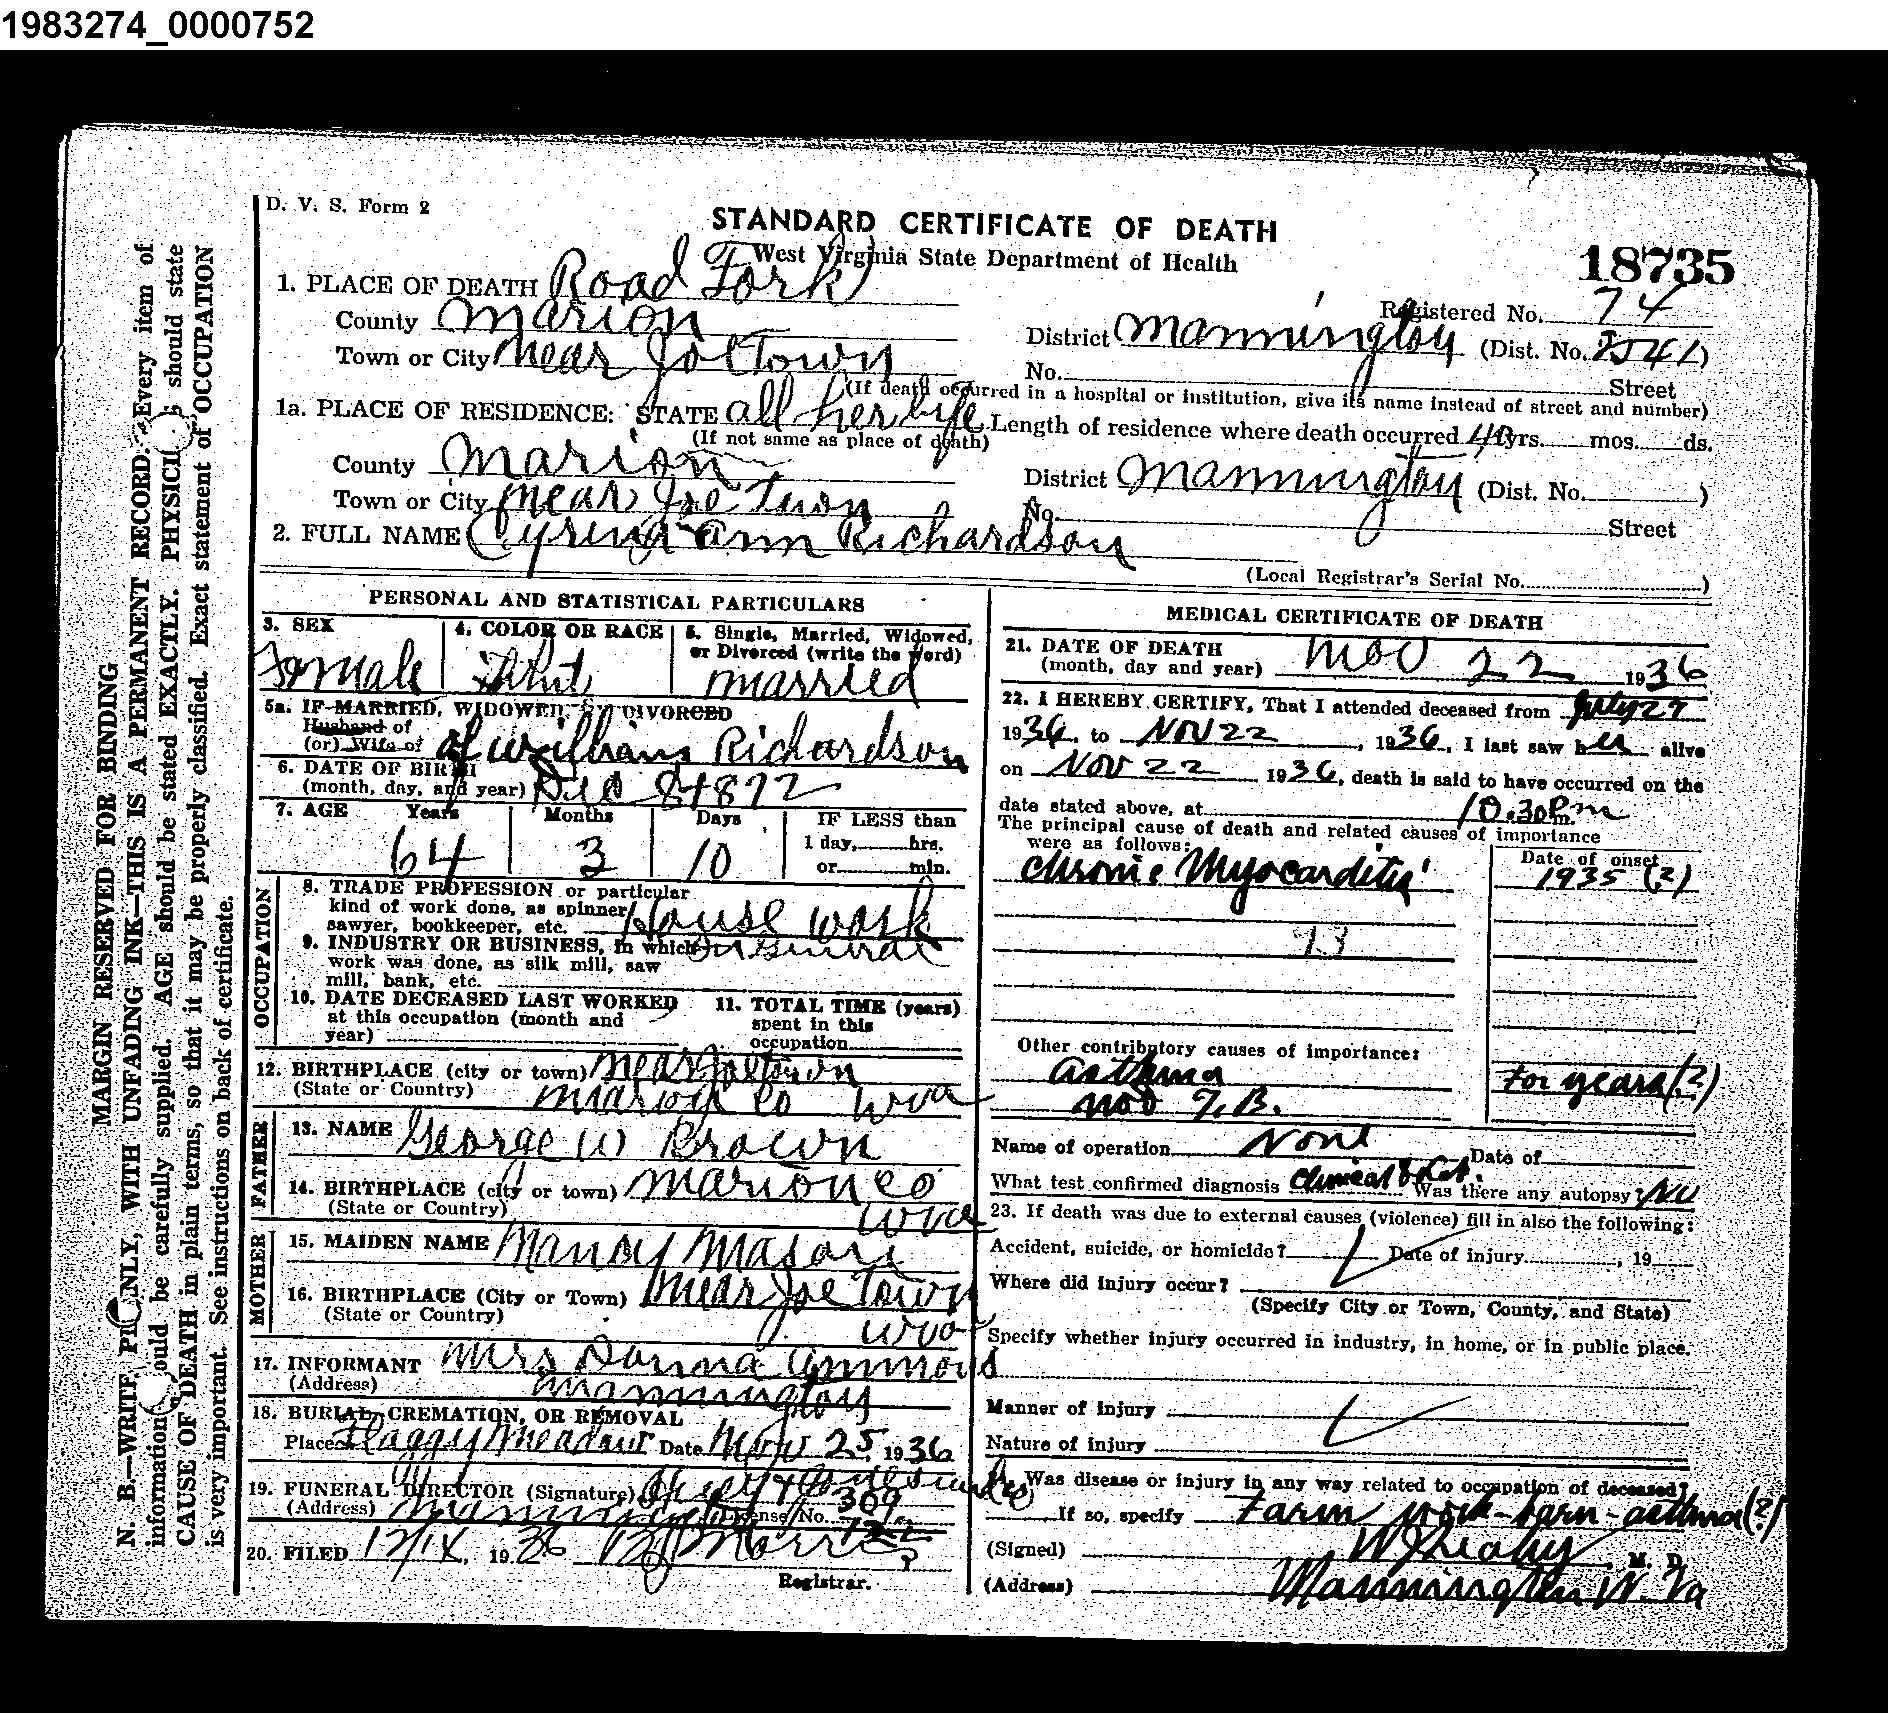 1983274_0000752
D. V. S. Form 2
STANDARD CERTIFICATE OF DEATH
West Virginia State Department of Health
18735
1. PLACE OF DEATH Road Fork
Registered No. 74
County Marion
District Mannington (Dist. No. 2541)
Town or City near Joetown
No. Street
(If death occurred in a hospital or institution, give its name instead of street and number)
1a. PLACE OF RESIDENCE: STATE all her life Length of residence where death occurred yrs. mos. ds.
(If not same as place of death)
County Marion
District Mannington (Dist. No. )
Town or City near Joe Town
No. Street
2. FULL NAME Cyrena Ann Richardson
(Local Registrar's Serial No. )
PERSONAL AND STATISTICAL PARTICULARS
3. SEX
Female
4. COLOR OR RACE
5. Single, Married, Widowed,
or Divorced (write the word)
married
5a. IF MARRIED, WIDOWED, OR DIVORCED
Husband of
(or) Wife of of William Richardson
6. DATE OF BIRTH
(month, day, and year) Dec 8 1872
7. AGE Years Months Days IF LESS than
1 day, hrs.
or min.
64 3 10
OCCUPATION
8. TRADE PROFESSION or particular
kind of work done, as spinner,
sawyer, bookkeeper, etc. House work
9. INDUSTRY OR BUSINESS, in which in general
work was done, as silk mill, saw
mill, bank, etc.
10. DATE DECEASED LAST WORKED
at this occupation (month and
year)
11. TOTAL TIME (years)
spent in this
occupation
12. BIRTHPLACE (city or town) near Joetown
(State or Country) Marion Co Wva
FATHER
13. NAME George W Brown
14. BIRTHPLACE (city or town) Marion Co
(State or Country) Wva
MOTHER
15. MAIDEN NAME Mason
16. BIRTHPLACE (City or Town) near Joe Town
(State or Country) Wva
17. INFORMANT Mrs Ammons
(Address) Mannington
18. BURIAL, CREMATION, OR REMOVAL
Place Flaggy Meadow Date Nov 25, 1936
19. FUNERAL DIRECTOR (Signature)
(Address) Mannington License No. 309
20. FILED 1936
Registrar.
MEDICAL CERTIFICATE OF DEATH
21. DATE OF DEATH
(month, day and year) Nov 22 1936
22. I HEREBY CERTIFY, That I attended deceased from July 27
1936, to Nov 22, 1936, I last saw her alive
on Nov 22 1936, death is said to have occurred on the
date stated above, at 10.30 Pm
The principal cause of death and related causes of importance
were as follows:
Date of onset
Chronic Myocarditis 1935 (?)
Other contributory causes of importance:
Asthma For years (?)
Not T.B.
Name of operation None Date of
What test confirmed diagnosis Clinical & Lab. Was there any autopsy? No
23. If death was due to external causes (violence) fill in also the following:
Accident, suicide, or homicide? Date of injury , 19
Where did injury occur?
(Specify City or Town, County, and State)
Specify whether injury occurred in industry, in home, or in public place.
Manner of injury
Nature of injury
Was disease or injury in any way related to occupation of deceased?
If so, specify Farm work-barn-asthma (?)
(Signed) M. D.
(Address) Mannington W. Va
MARGIN RESERVED FOR BINDING
N. B.—WRITE PLAINLY, WITH UNFADING INK—THIS IS A PERMANENT RECORD. Every item of
information should be carefully supplied. AGE should be stated EXACTLY. PHYSICIANS should state
CAUSE OF DEATH in plain terms, so that it may be properly classified. Exact statement of OCCUPATION
is very important. See instructions on back of certificate.